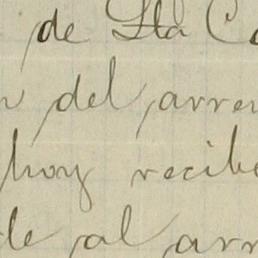 de Sta Ca
n del arren
hoy recibe
de al arr